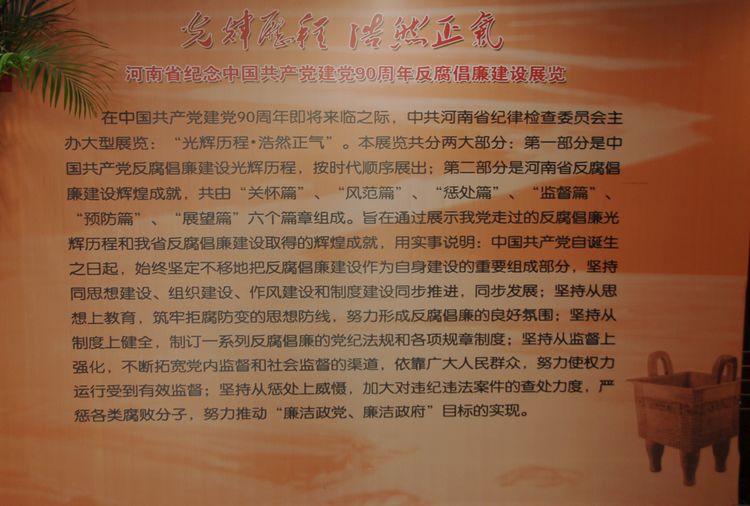 光辉历程 浩然正气
河南省纪念中国共产党建党90周年反腐倡廉建设展览
在中国共产党建党90周年即将来临之际，中共河南省纪律检查委员会主
办大型展览：“光辉历程·浩然正气”。本展览共分两大部分：第一部分是中
国共产党反腐倡廉建设光辉历程，按时代顺序展出；第二部分是河南省反腐倡
廉建设辉煌成就，共由“关怀篇”、“风范篇”、“惩处篇”、“监督篇”、
“预防篇”、“展望篇”六个篇章组成。旨在通过展示我党走过的反腐倡廉光
辉历程和我省反腐倡廉建设取得的辉煌成就，用实事说明：中国共产党自诞生
之日起，始终坚定不移地把反腐倡廉建设作为自身建设的重要组成部分，坚持
同思想建设、组织建设、作风建设和制度建设同步推进，同步发展；坚持从思
想上教育，筑牢拒腐防变的思想防线，努力形成反腐倡廉的良好氛围；坚持从
制度上健全，制订一系列反腐倡廉的党纪法规和各项规章制度；坚持从监督上
强化，不断拓宽党内监督和社会监督的渠道，依靠广大人民群众，努力使权力
运行受到有效监督；坚持从惩处上威慑，加大对违纪违法案件的查处力度，严
惩各类腐败分子，努力推动“廉洁政党、廉洁政府”目标的实现。